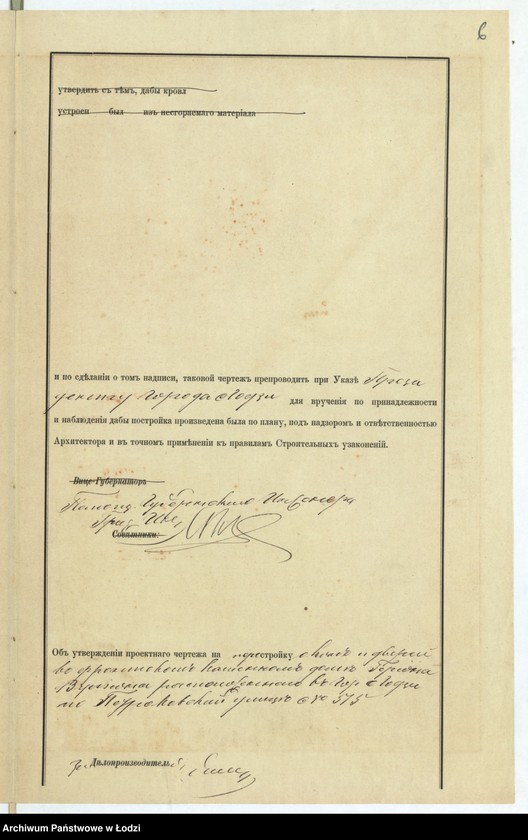 6
утвердить съ тѣмъ, дабы кровля
устроен былъ изъ несгораемаго матеріала
и по сдѣланіи о томъ надписи, таковой чертежъ препроводить при Указѣ Прези
денту Города Лодзи для врученія по принадлежности
и наблюденія дабы постройка произведена была по плану, подъ надзоромъ и отвѣтственностью
Архитектора и въ точномъ примѣненіи къ правиламъ Строительныхъ узаконеній.
Вице-Губернаторъ
Губернскаго Инженера
Совѣтники:
Объ утвержденіи проектнаго чертежа на перестройку оконъ и дверей
во фронтовомъ каменномъ домѣ Германа
расположеннаго въ гор. Лодзи
по Петроковской улицѣ № 515
Дѣлопроизводитель
Archiwum Państwowe w Łodzi